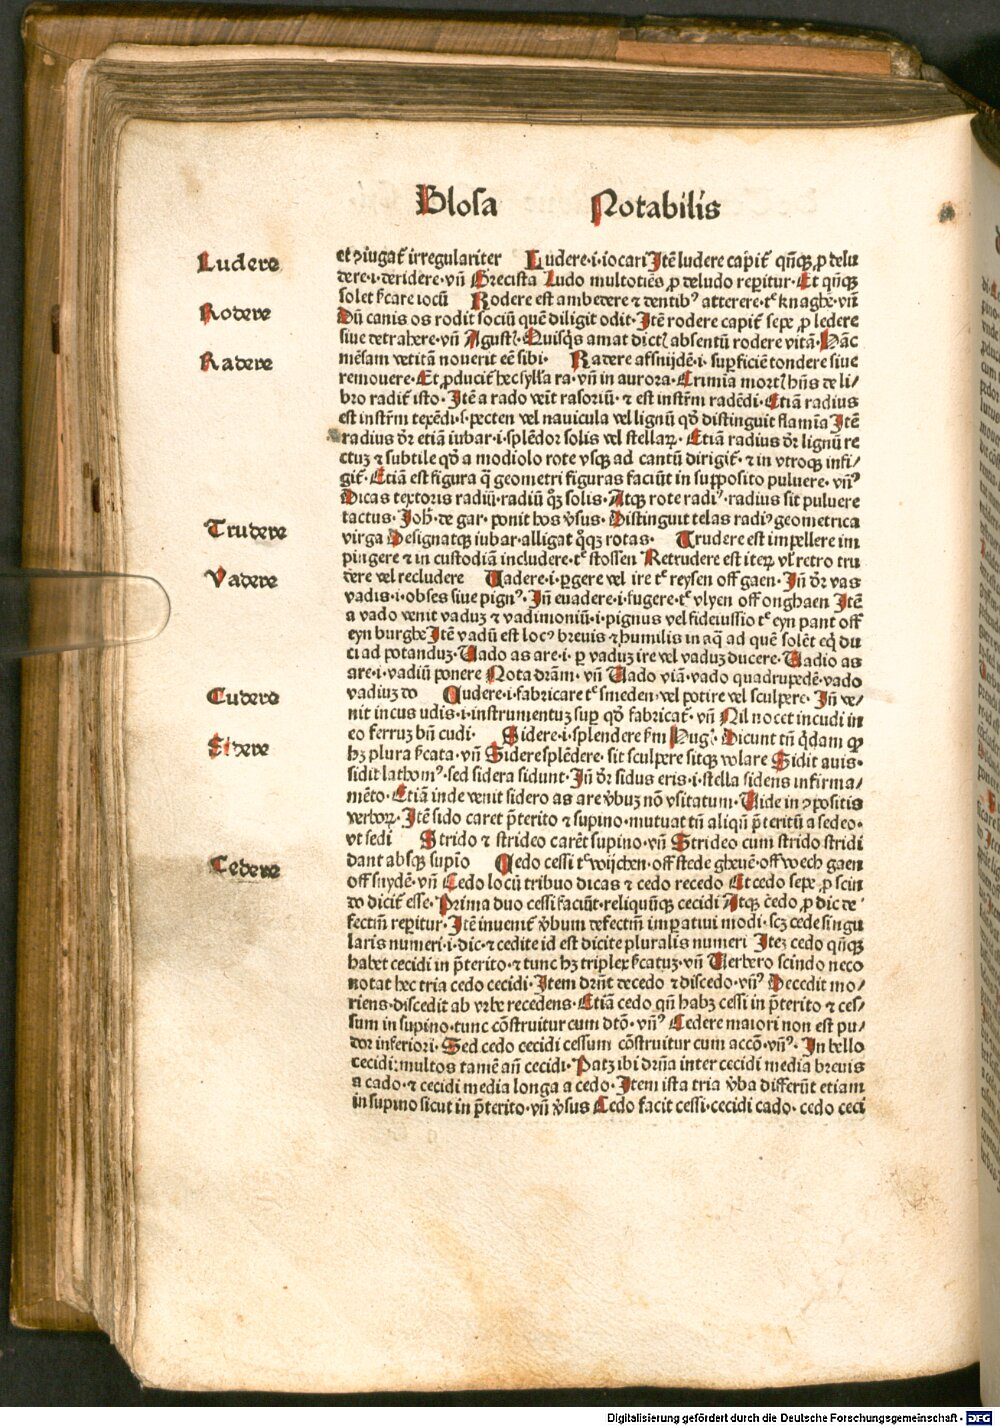 Glosa Notabilis
Ludere
et ꝯiugat᷑ irregulariter Ludere·i·iocari Itē ludere capit᷑ qn̄qꝫ ꝓ delu
dere·i·deridere·vn̄ Grecista Ludo multotiēs ꝓ deludo reperitur·Et qn̄qꝫ
solet ſcare iocū Rodere est ambedere ⁊ dentibꝰ atterere·te knaghē·vn̄
Rodere
Dū canis os rodit sociū quē diligit odit·Itē rodere capit᷑ sepe ꝓ ledere
siue detrahere·vn̄ Agustꝰ·Quisqs amat dictꝭ absentū rodere vitā·Hāc
mēsam vetitā nouerit eē sibi· Radere afsnijdē·i·suꝑficiē tondere siue
Radere
remouere·Et ꝓducit᷑ hec sylla ra·vn̄ in aurora·Crimīa mortꝭ hn̄s de li/
bro radit᷑ isto·Itē a rado veīt rasoriū·⁊ est instrm̄ radēdi·Etiā radius
est instrm̄ texēdi·s·pecten vel nauicula vel lignū qd̄ distinguit stamīa Itē
radius dr̄ etiā iubar·i·splēdor solis vel stellaꝝ·Etiā radius dr̄ lignū re
ctuꝫ ⁊ subtile qd̄ a modiolo rote vsqꝫ ad cantū dirigit᷑·⁊ in vtroqꝫ infi/
git᷑·Etiā est figura q̄ geometri figuras faciūt in supposito puluere·vn̄ꝰ
Dicas textoris radiū·radiū qꝫ solis·Atqꝫ rote radiꝰ·radius sit puluere
tactus·Joh̄·de gar·ponit hos v̄sus·Distinguit telas radiꝰ geometrica
Trudere
virga Designatqꝫ iubar·alligat qqꝫ rotas· Trudere est impellere im
pingere ⁊ in custodiā includere·te stossen Retrudere est iteꝝ vl̓ retro tru
dere vel recludere Vadere·i·ꝑgere vel ire te reysen off gaen·In̄ dr̄ vas
Vadere
vadis·i·obses siue pignꝰ·In̄ euadere·i·fugere·te vlyen off onghaen Itē
a vado venit vaduꝫ ⁊ vadimoniū·i·pignus vel fideiussio te eyn pant off
eyn burghe Itē vadū est locꝰ breuis ⁊ humilis in aq̄ ad quē solēt eq̄ du
ci ad potanduꝫ·Vado as are·i·ꝑ vaduꝫ ire vel vaduꝫ ducere·Vadio as
are·i·vadiū ponere Nota dr̄am·vn̄ Vado viā·vado quadrupedē·vado
vadiuꝫ do Cudere·i·fabricare te smeden·vel polire vel sculpere·In̄ ve/
Cudere
nit incus udis·i·instrumentuꝫ suꝑ qd̄ fabricat᷑·vn̄ Nil nocet incudi in
eo ferruꝫ bn̄ cudi· Sidere·i·splendere ẜm Hug·Dicunt tn̄ qdam ꝙ
Sidere
hꝫ plura ſcata·vn̄ Sidere splēdere·sit sculpere sitqꝫ volare Sidit auis·
sidit lathomꝰ·sed sidera sidunt·In̄ dr̄ sidus eris·i·stella sidens in firma/
mēto·Etiā inde venit sidero as are v̄buꝫ nō vsitatum·Vide in ꝯpositis
verboꝝ·Itē sido caret p̄terito ⁊ supino·mutuat tn̄ aliqn̄ p̄teritū a sedeo·
vt sedi Strido ⁊ strideo carēt supino·vn̄ Strideo cum strido stridi
dant absqꝫ supīo Cedo cessi te wijchen·off stede gheuē·off wech gaen
Cedere
off snydē·vn̄ Cedo locū tribuo dicas ⁊ cedo recedo Et cedo sepe ꝓ scin
do dicit᷑ esse·Prima duo cessi faciūt·reliqūqꝫ cecidi Atqꝫ cedo ꝓ dic de
fectiū reꝑitur·Itē inuenit᷑ v̄bum defectiū imꝑatiui modi·scꝫ cede singu
laris numeri·i·dic·⁊ cedite id est dicite pluralis numeri Iteꝫ cedo qn̄qꝫ
habet cecidi in p̄terito·⁊ tunc hꝫ triplex ſcatuꝫ·vn̄ Verbero scindo neco
notat hec tria cedo cecidi·Item drn̄t decedo ⁊ discedo·vn̄ꝰ Decedit mo/
riens·discedit ab vrbe recedens·Etiā cedo qn̄ habꝫ cessi in p̄terito ⁊ ces/
sum in supino·tunc cōstruitur cum dtō·vn̄ꝰ Cedere maiori non est pu/
dor inferiori·Sed cedo cecidi cessum cōstruitur cum accō·vn̄ꝰ·In bello
cecidi:multos tamē an̄ cecidi·Patꝫ ibi drn̄a inter cecidi media breuis
a cado·⁊ cecidi media longa a cedo·Item ista tria v̄ba differūt etiam
in supino sicut in p̄terito·vn̄ v̄sus Cedo facit cessi·cecidi cado·cedo ceci
Digitalisierung gefördert durch die Deutsche Forschungsgemeinschaft - DFG